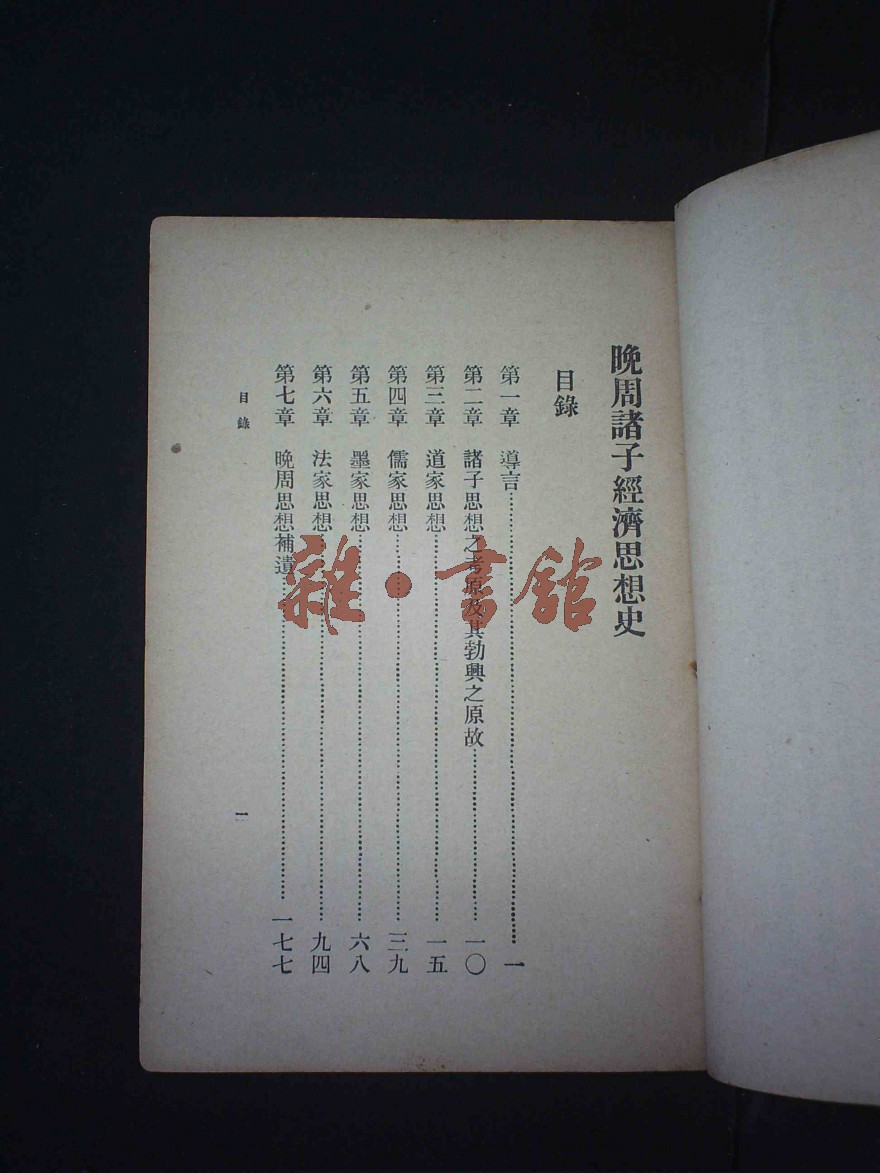 晚周諸子經濟思想史
目錄
第一章 導言……一
第二章 諸子思想之考原及其勃興之原故……一〇
第三章 道家思想……一五
第四章 儒家思想……三九
第五章 墨家思想……六八
第六章 法家思想……九四
第七章 晚周思想補遺……一七七
目錄
一
雜·書館